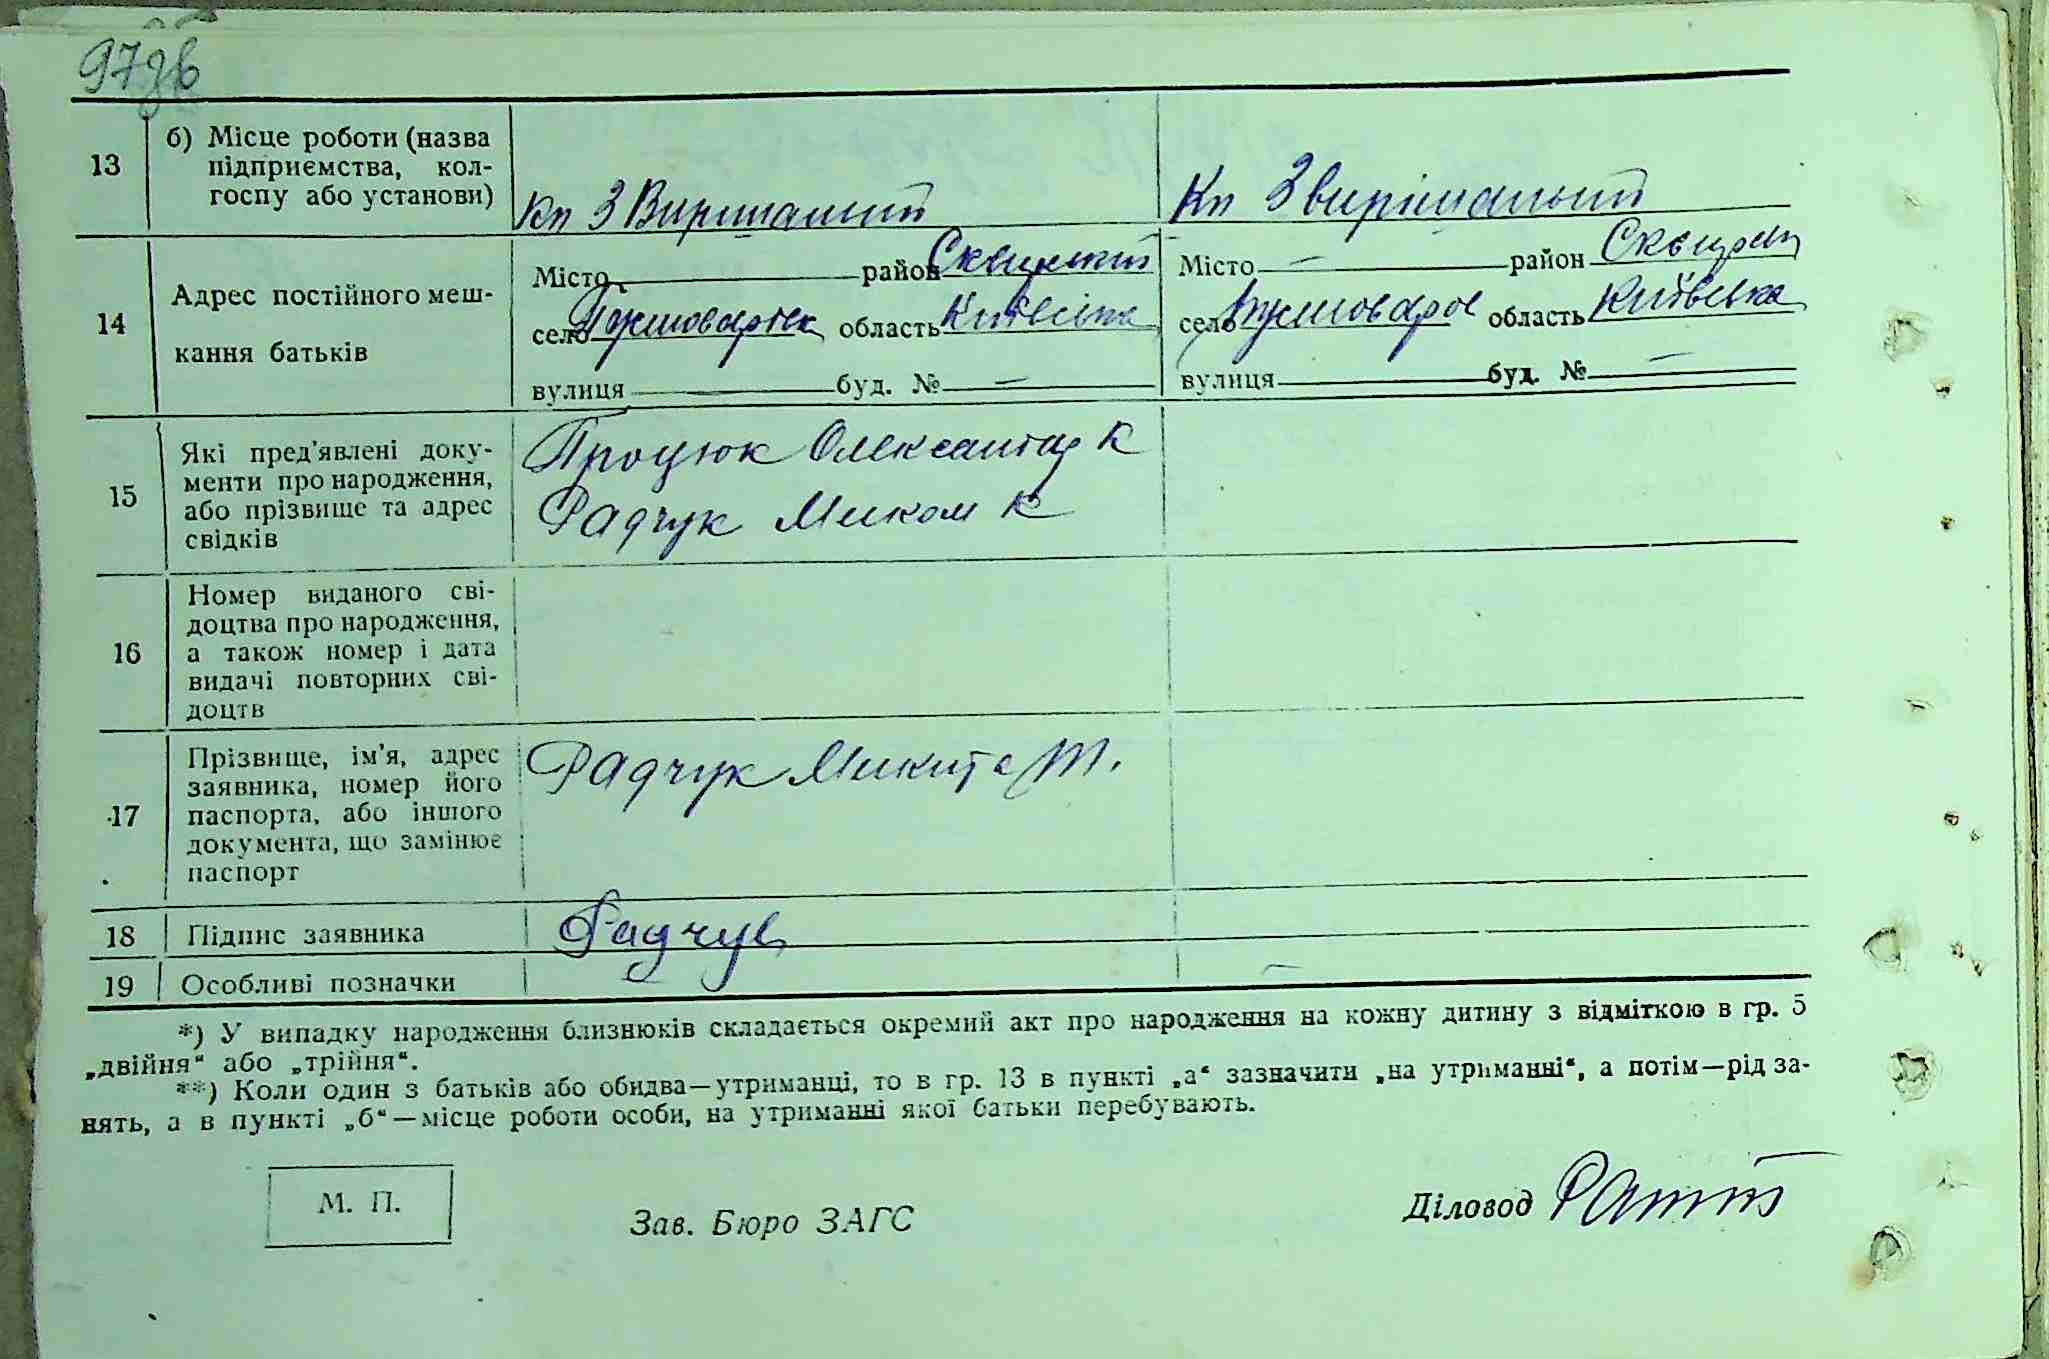 97зв
13
б) Місце роботи (назва
підприємства, кол-
госпу або установи)
Кп 3 Вирішальний
Кп 3 вирішальний
14
Адрес постійного меш-
кання батьків
Місто район Сквирський
село область Київська
вулиця буд. № —
Місто — район Сквирськ
село область Київська
вулиця буд. № —
15
Які пред'явлені доку-
менти про народження,
або прізвище та адрес
свідків
Процюк Олександр К
Радчук Микола К
16
Номер виданого сві-
доцтва про народження,
а також номер і дата
видачі повторних сві-
доцтв
17
Прізвище, ім'я, адрес
заявника, номер його
паспорта, або іншого
документа, що замінює
паспорт
Радчук Микита Т.
18 Підпис заявника Радчук
19 Особливі позначки —
*) У випадку народження близнюків складається окремий акт про народження на кожну дитину з відміткою в гр. 5
„двійня“ або „трійня“.
**) Коли один з батьків або обидва—утриманці, то в гр. 13 в пункті „а“ зазначити „на утриманні“, а потім—рід за-
нять, а в пункті „б“—місце роботи особи, на утриманні якої батьки перебувають.
М. П.
Зав. Бюро ЗАГС
Діловод